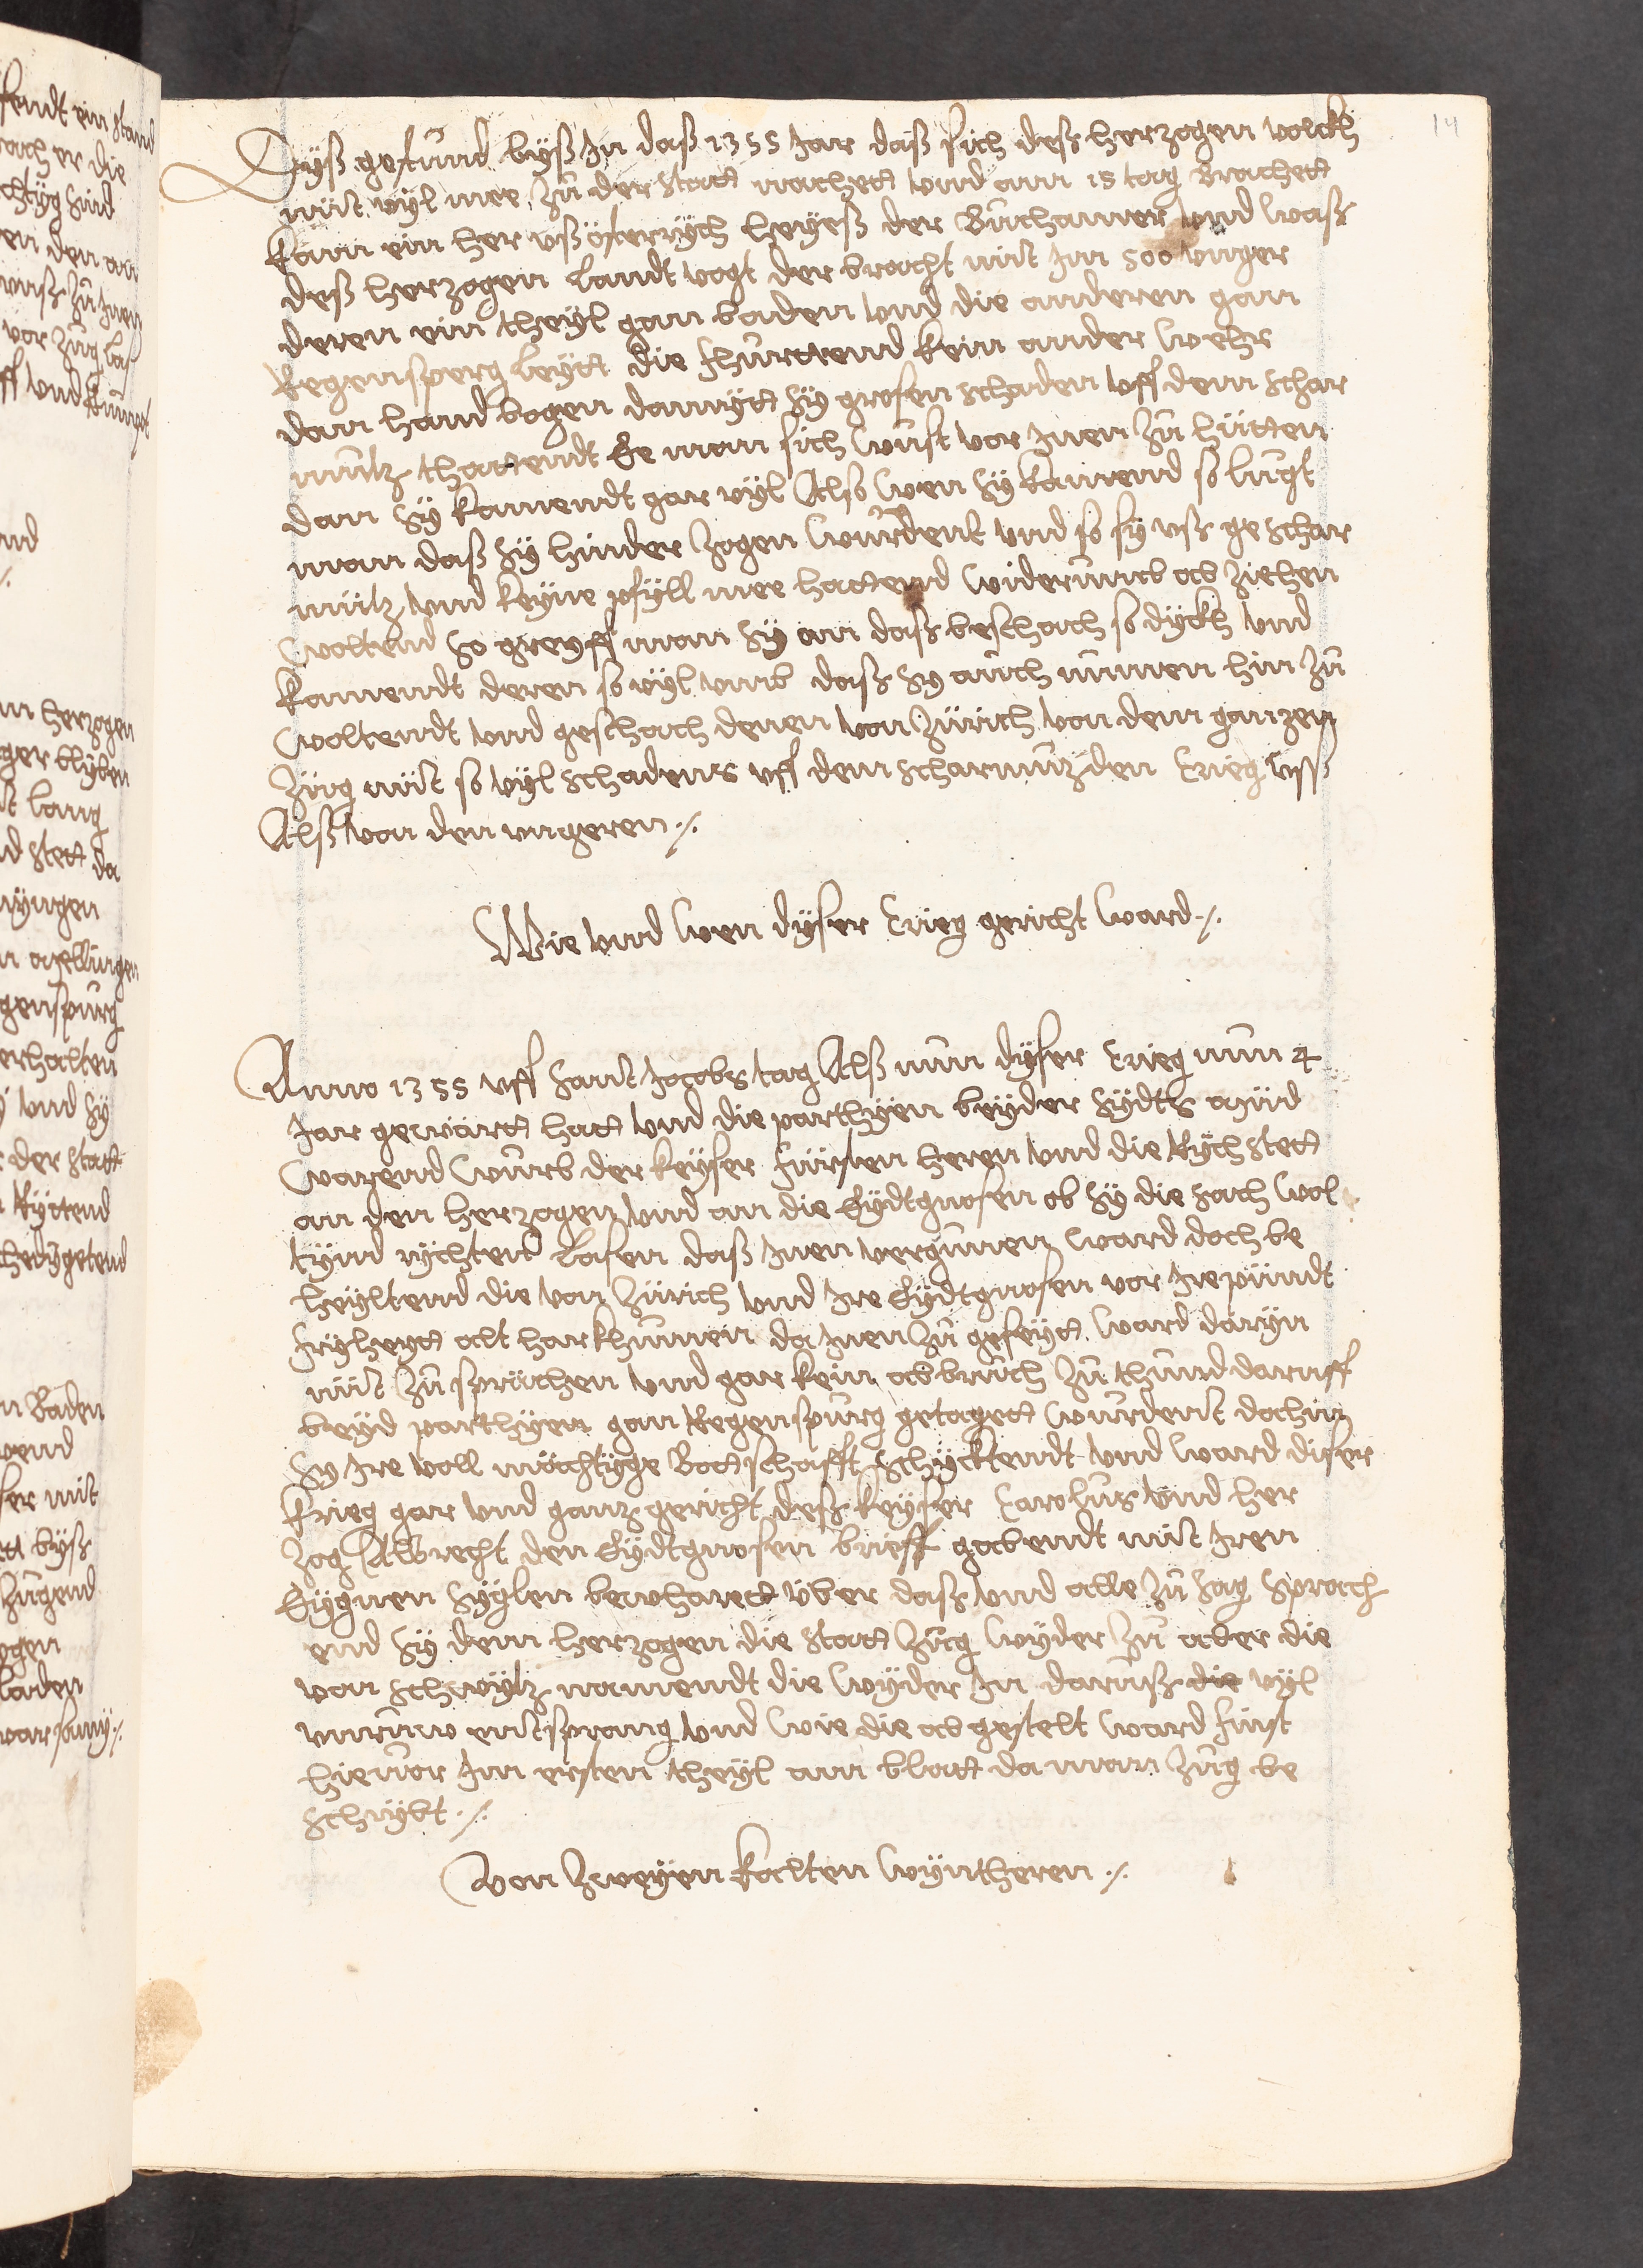 14
Dyß gestund byß Jn daß 1355 Jar daß sich deß herzogen volckh
nüt vyl mee zů der statt nachett vnd am 15 tag Brachett
kam ein her vß österrych heyeß der Bůchamer vnd waß
deß herzogen landt vogt der bracht mit Jm 500 vnger
deren ein theyl gan baden vnd die anderen gan
Regensperg leytt die fhůrrtend kein ander wehr
dan hand bogen damytt sy grosen schaden vff dem schar
mütz thattendt Ee man sich wust vor Jnen zů hütten
dan sy kamendt gar vyl Also wen sy kamend so lůgt
man daß sy hinder zogen wurdent vnd so sy vß ge schar
mütz vnd keyne pfyll mee hattend widerumb ab ziehen
woltend so greyff man sy an daß beschach so dyckh vnd
kamendt deren so vyl vmb daß sy auch nümen hin zů
woltendt vnd geschach denen von Zürich von dem ganzen
züg nüt so vyl schadens vff dem scharmüz den krieg vß
Alß von den vngeren ./.
Wie vnd wen dyser krieg gericht ward ./.
Anno 1355 vff sant Jacobs tag Alß nun dyser krieg nun 4
Jar gewärtt hatt vnd die parthyen beyder sydts müd
warend wurb der keyser fürsten heren vnd die Rychstett
an den herzogen vnd an die Eydtgnosen ob sy die sach wol
tynd rychten lasen daß Jnen vergunen ward doch be
heyltend die von Zürich vnd Jre Eydtgnosen vor Jre pündt
fryheytt alt harkhumen da Jnen zů geseytt ward daryn
nüt zů sprächen vnd gar kein abbruch zů thund daruff
beyd parthyen gan Regenspurg getagett wurdent dahin
sy Jre voll mächtyge Bottschafft schycktendt vnd ward diser
krieg gar vnd ganz gericht deß keyser Carolus vnd her
zog Albrecht den Eydtgnosen brieff gabendt mit Jren
Eygnen syglen bewharett über daß vnd alle zů sag sprach
end sy dem herzogen die statt Zug wyder zů aber die
von schwytz namendt die wyder Jn daruß die vyl
vnruw entsprang vnd wie die ab gestelt ward finst
hieuor Jm ersten theyl am blatt da man Zug be
schrybt ./.
Von zweyen kalten wyntheren ./.